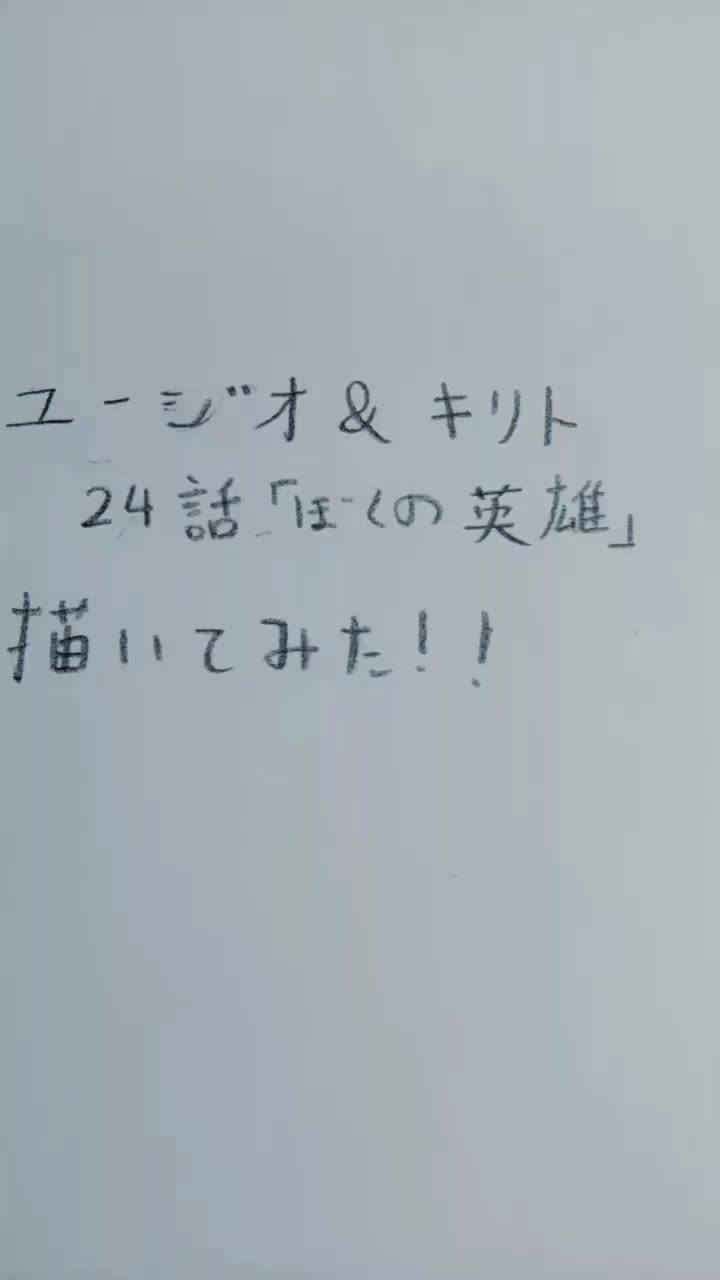 ユージオ & キリト
24話「ぼくの英雄」
描いてみた！！